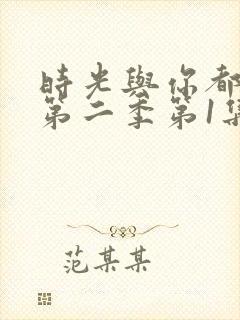 時光與你都
第二季第1集
范某某